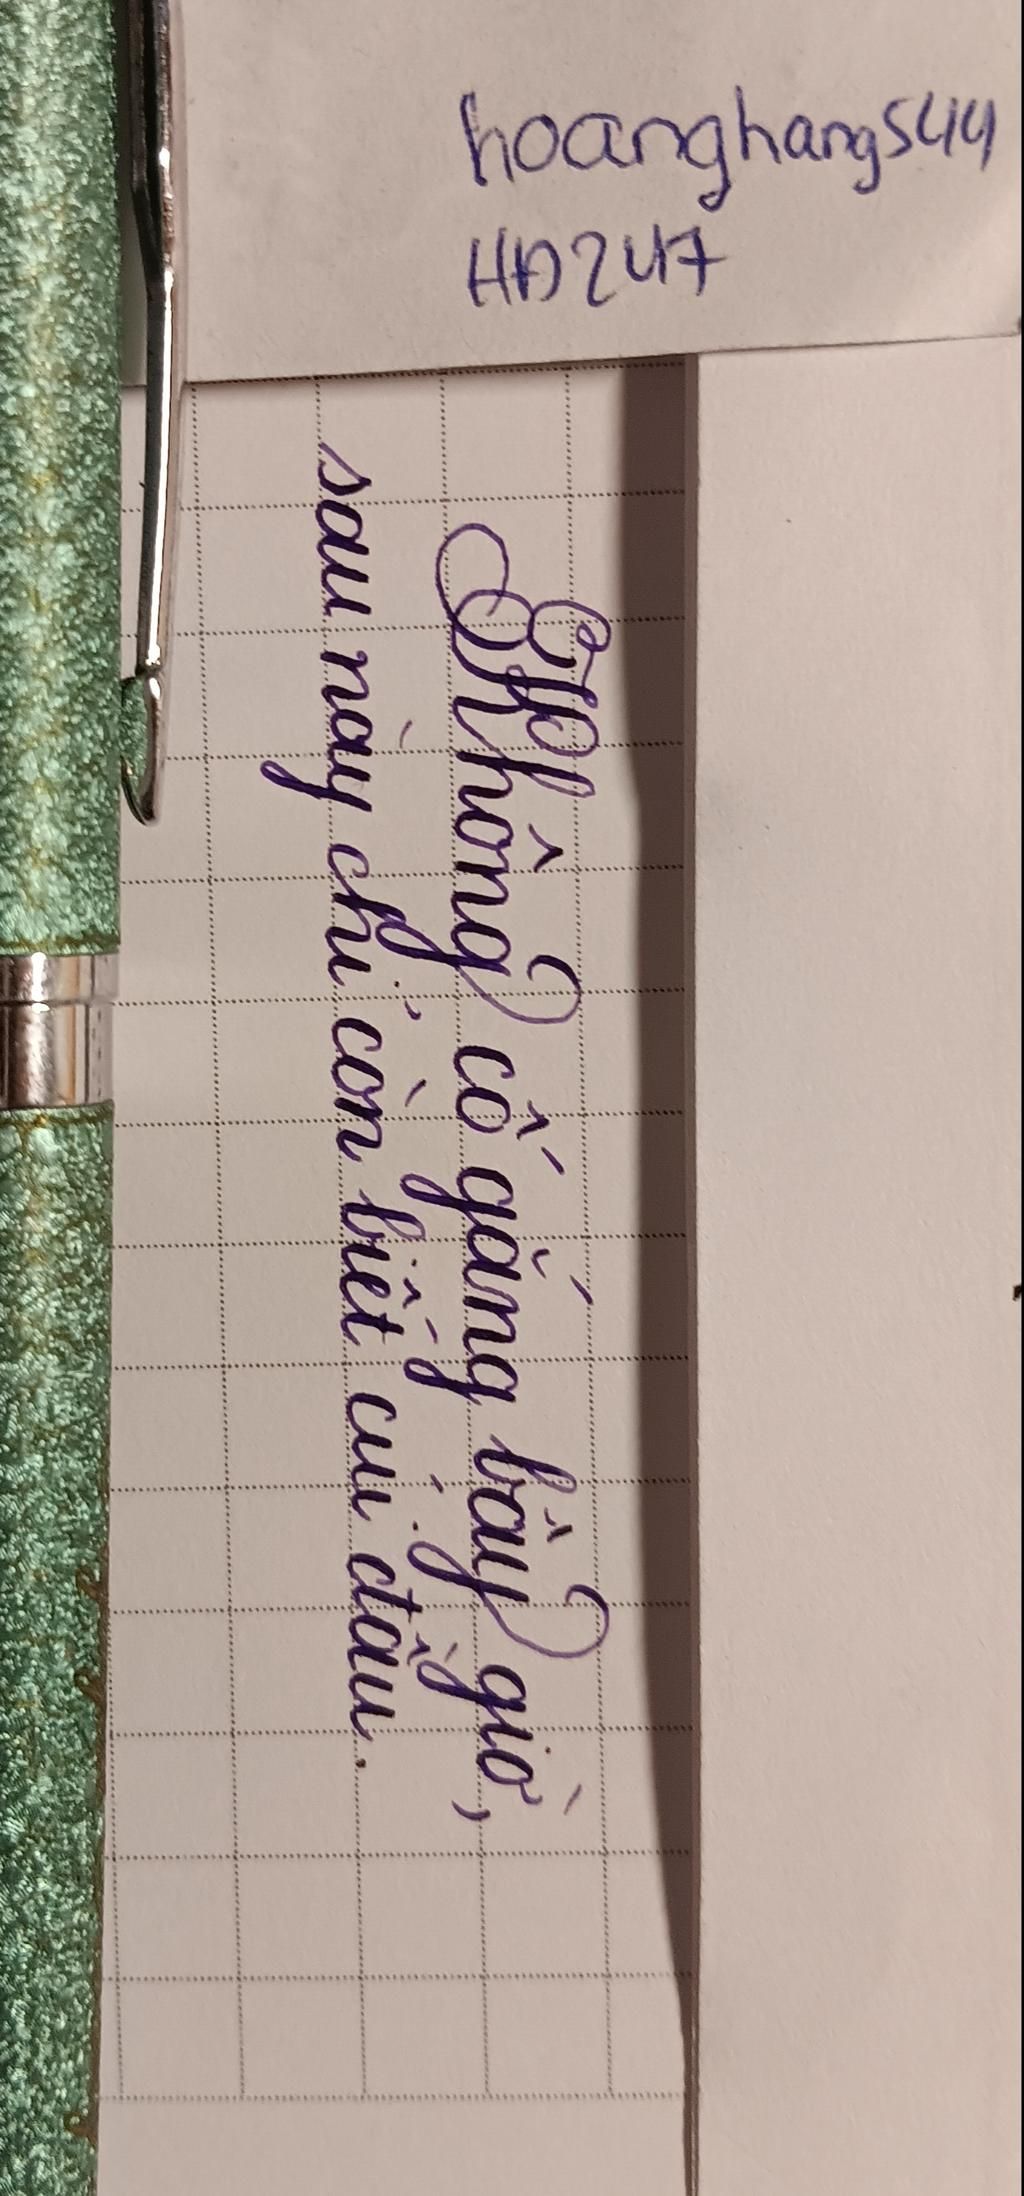 hoanghang5444
HD247
Không cố gắng bây giờ,
sau này chỉ còn biết cúi đầu.